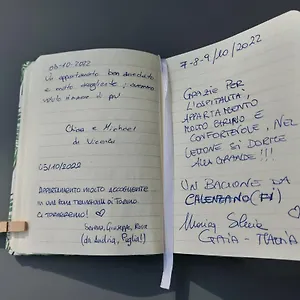 03-10-2022
Un appartamento ben arredato
e molto accogliente; avremmo
voluto rimanere di più
Chiara e Michael
da Vicenza
05/10/2022
APPARTAMENTO MOLTO ACCOGLIENTE
IN UNA ZONA TRANQUILLA DI TORINO.
CI TORNEREMO!
Serena, Giuseppe, Rosa
(da Andria, Puglia!)
7-8-9/10/2022
GRAZIE PER
L'OSPITALITÀ,
APPARTAMENTO
MOLTO CARINO E
CONFORTEVOLE, NEL
LETTONE SI DORME
ALLA GRANDE!!!
UN BACIONE DA
CALENZANO (FI)
GAIA - MATTIA